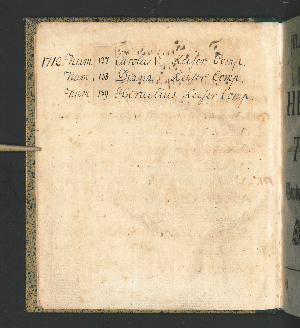 1712 Num. 137 Carolus V. Keiser Comp.
Num. 138 Diana. Keiser Comp.
Num. 139 Heraclius Keiser Comp.